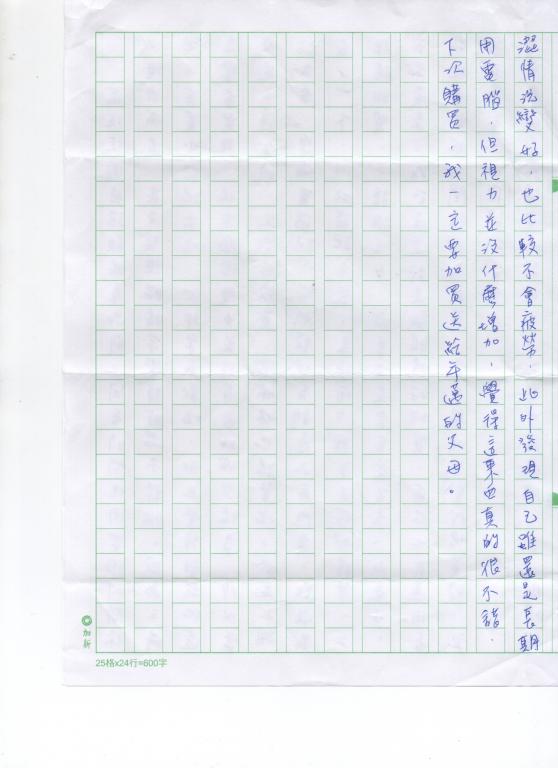 混情況變好，也比較不會疲勞，此外發現自己雖還是長期
用電腦，但視力並沒什麼增加，覺得這東西真的很不錯．
下次購買，我一定要加買送給年邁的父母。
加新
25格x24行=600字